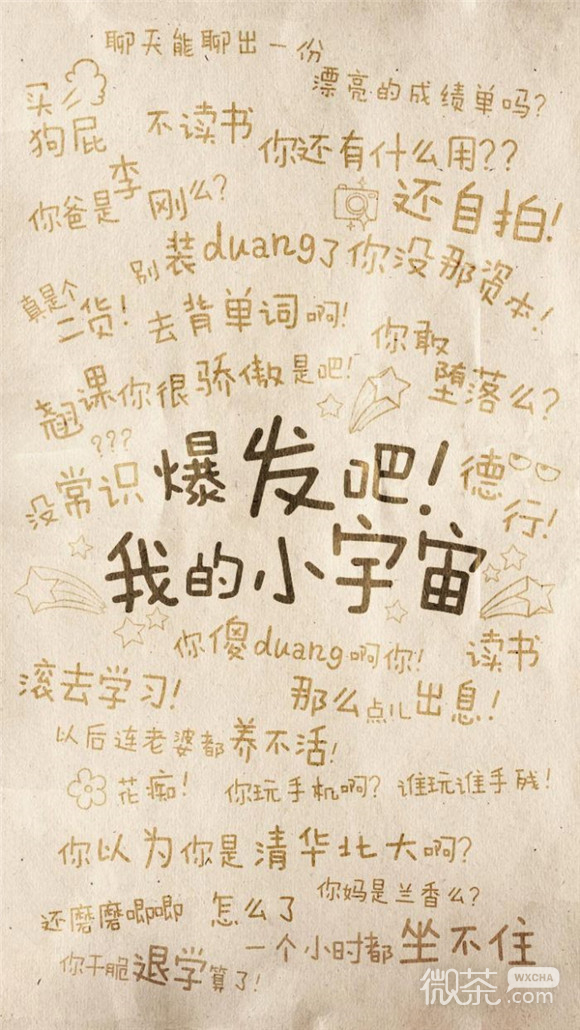 聊天能聊出一份
漂亮的成绩单吗?
买
狗屁
不读书
你还有什么用??
你爸是李刚么?
还自拍!
别装duang了你没那资本!
真是个
二货!
去背单词啊!
你敢
堕落么?
翘课你很骄傲是吧!
???
没常识
爆发吧!
德
行!
我的小宇宙
你傻duang啊你!
读书
滚去学习!
那么点儿出息!
以后连老婆都养不活!
花痴!
你玩手机啊?谁玩谁手残!
你以为你是清华北大啊?
你妈是兰香么?
还磨磨唧唧
怎么了
一个小时都坐不住
你干脆退学算了!
微茶
WXCHA
.com